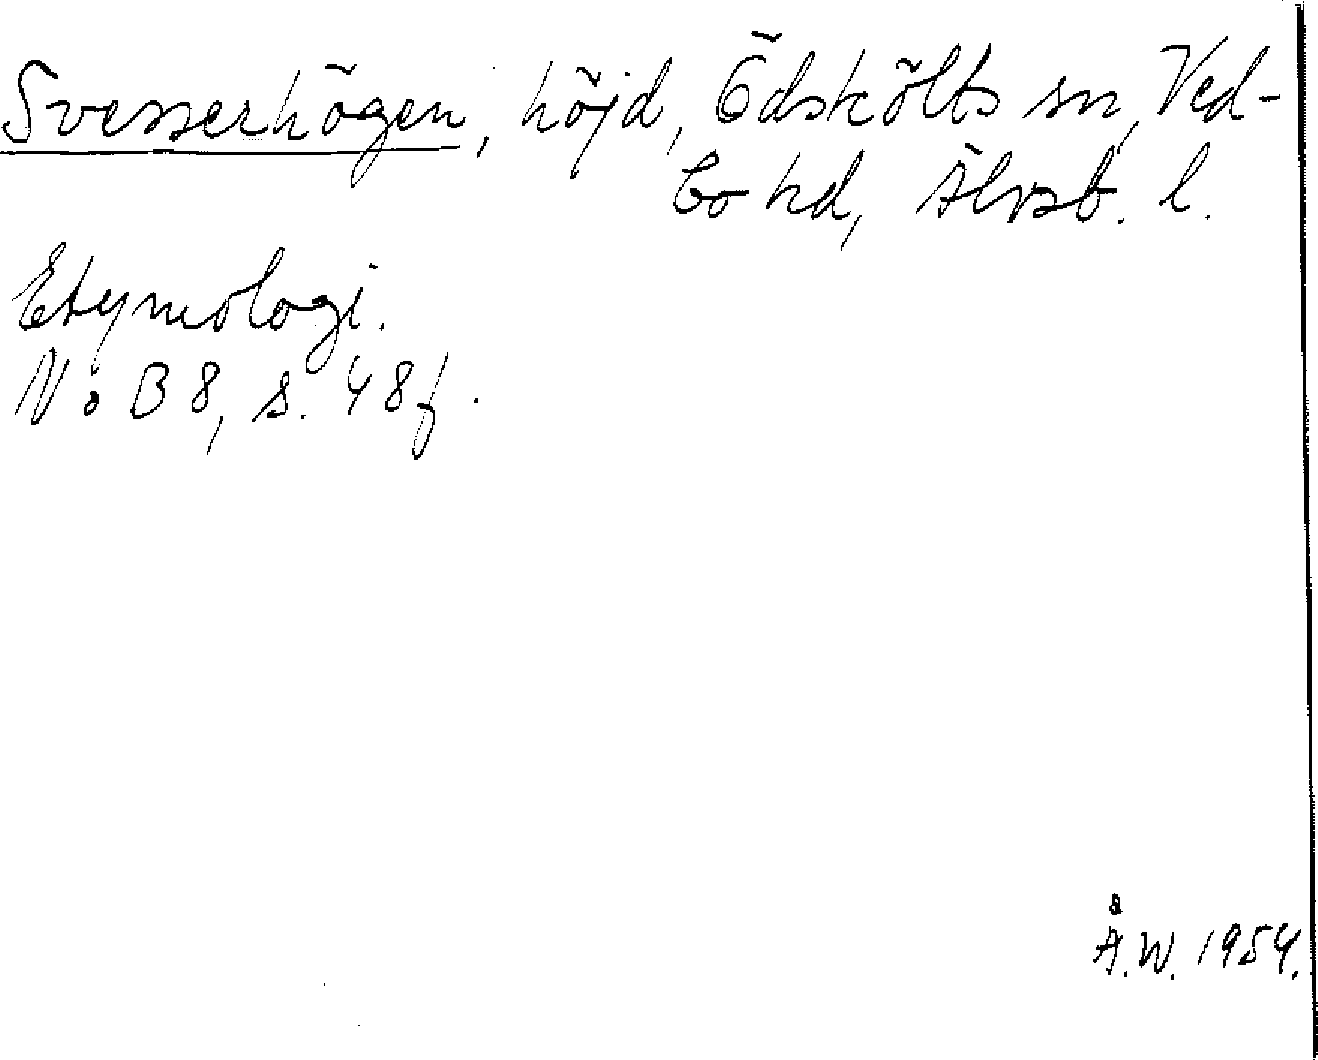 Svesserhögen, höjd, Ödskölts sn, Ved-
bo hd, Älvsb. l.
Etymologi.
No B 8, s. 48 f.
Å.W. 1954.